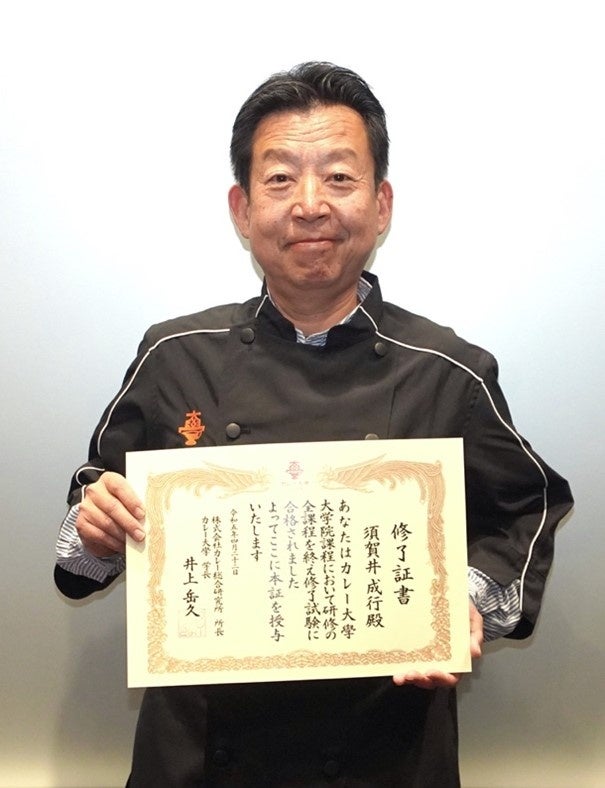 修了証書
須賀井成行殿
あなたはカレー大學
大学院課程において研修の
全課程を終え修了試験に
合格されました
よってここに本証を授与
いたします
令和五年四月二十二日
株式会社カレー総合研究所 所長
カレー大學 学長
井上岳久